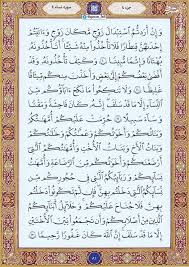 جزء ٤
سوره نساء ٤
وَإِنْ أَرَدتُّمُ ٱسْتِبْدَالَ زَوْجٍ مَّكَانَ زَوْجٍ وَءَاتَيْتُمْ
إِحْدَىٰهُنَّ قِنطَارًا فَلَا تَأْخُذُوا۟ مِنْهُ شَيْـًٔا أَتَأْخُذُونَهُۥ
بُهْتَـٰنًا وَإِثْمًا مُّبِينًا ﴿٢٠﴾ وَكَيْفَ تَأْخُذُونَهُۥ وَقَدْ أَفْضَىٰ
بَعْضُكُمْ إِلَىٰ بَعْضٍ وَأَخَذْنَ مِنكُم مِّيثَـٰقًا
غَلِيظًا ﴿٢١﴾ وَلَا تَنكِحُوا۟ مَا نَكَحَ ءَابَآؤُكُم مِّنَ
ٱلنِّسَآءِ إِلَّا مَا قَدْ سَلَفَ إِنَّهُۥ كَانَ فَـٰحِشَةً وَمَقْتًا
وَسَآءَ سَبِيلًا ﴿٢٢﴾ حُرِّمَتْ عَلَيْكُمْ أُمَّهَـٰتُكُمْ
وَبَنَاتُكُمْ وَأَخَوَٰتُكُمْ وَعَمَّـٰتُكُمْ وَخَـٰلَـٰتُكُمْ
وَبَنَاتُ ٱلْأَخِ وَبَنَاتُ ٱلْأُخْتِ وَأُمَّهَـٰتُكُمُ ٱلَّـٰتِىٓ
أَرْضَعْنَكُمْ وَأَخَوَٰتُكُم مِّنَ ٱلرَّضَـٰعَةِ وَأُمَّهَـٰتُ
نِسَآئِكُمْ وَرَبَـٰٓئِبُكُمُ ٱلَّـٰتِى فِى حُجُورِكُم مِّن
نِّسَآئِكُمُ ٱلَّـٰتِى دَخَلْتُم بِهِنَّ فَإِن لَّمْ تَكُونُوا۟ دَخَلْتُم
بِهِنَّ فَلَا جُنَاحَ عَلَيْكُمْ وَحَلَـٰٓئِلُ أَبْنَآئِكُمُ
ٱلَّذِينَ مِنْ أَصْلَـٰبِكُمْ وَأَن تَجْمَعُوا۟ بَيْنَ ٱلْأُخْتَيْنِ
إِلَّا مَا قَدْ سَلَفَ إِنَّ ٱللَّهَ كَانَ غَفُورًا رَّحِيمًا ﴿٢٣﴾
٨١